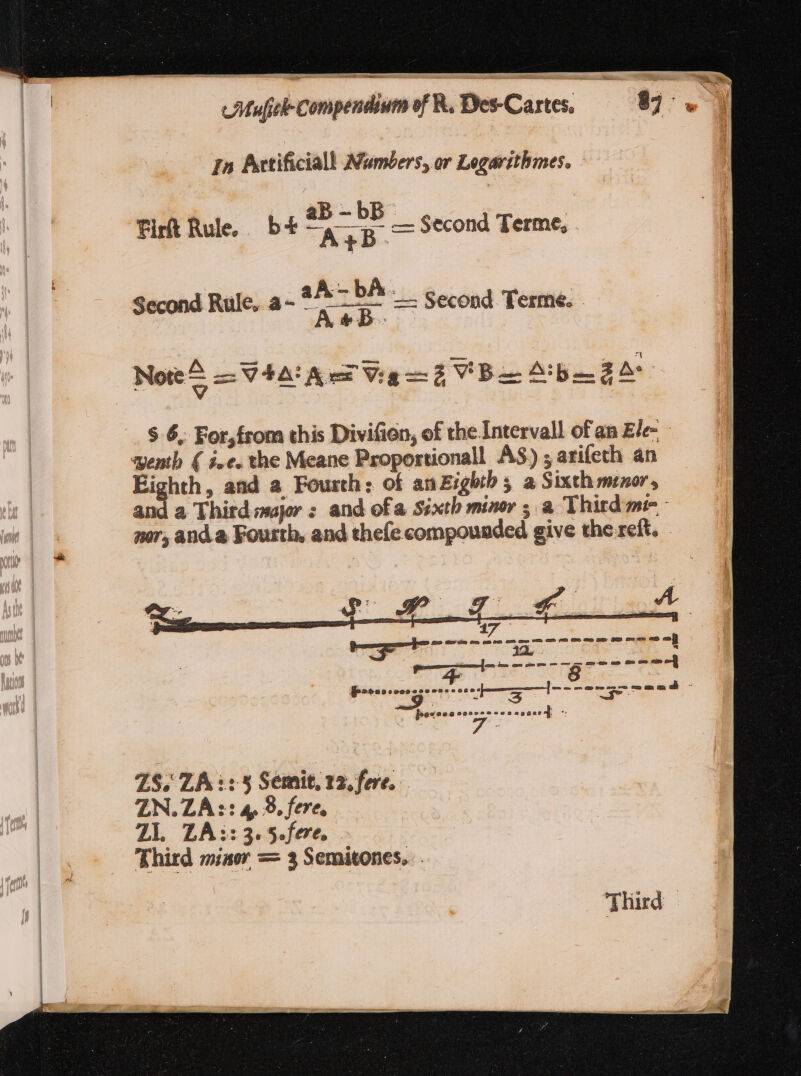 Musick-Compendium of R. Des-Cartes. 87
In Artificiall Numbers, or Logarithmes.
First Rule. b + aB - bB / A + B = Second Terme,
Second Rule, a - aA - bA / A + B = Second Terme.
§ 6, For, from this Division, of the Intervall of an Ele-
venth ( i.e. the Meane Proportionall AS) ; ariseth an
Eighth, and a Fourth: of an Eighth ; a Sixth minor,
and a Third major : and of a Sixth minor ; a Third mi-
nor, and a Fourth, and these compounded give the rest.
Z S N I F A
17
5 12
4 8
9 3 5
7
ZS. ZA :: 5 Semit. 12. fere.
ZN. ZA :: 4. 8. fere.
ZI. ZA :: 3. 5. fere.
Third minor = 3 Semitones.
Third